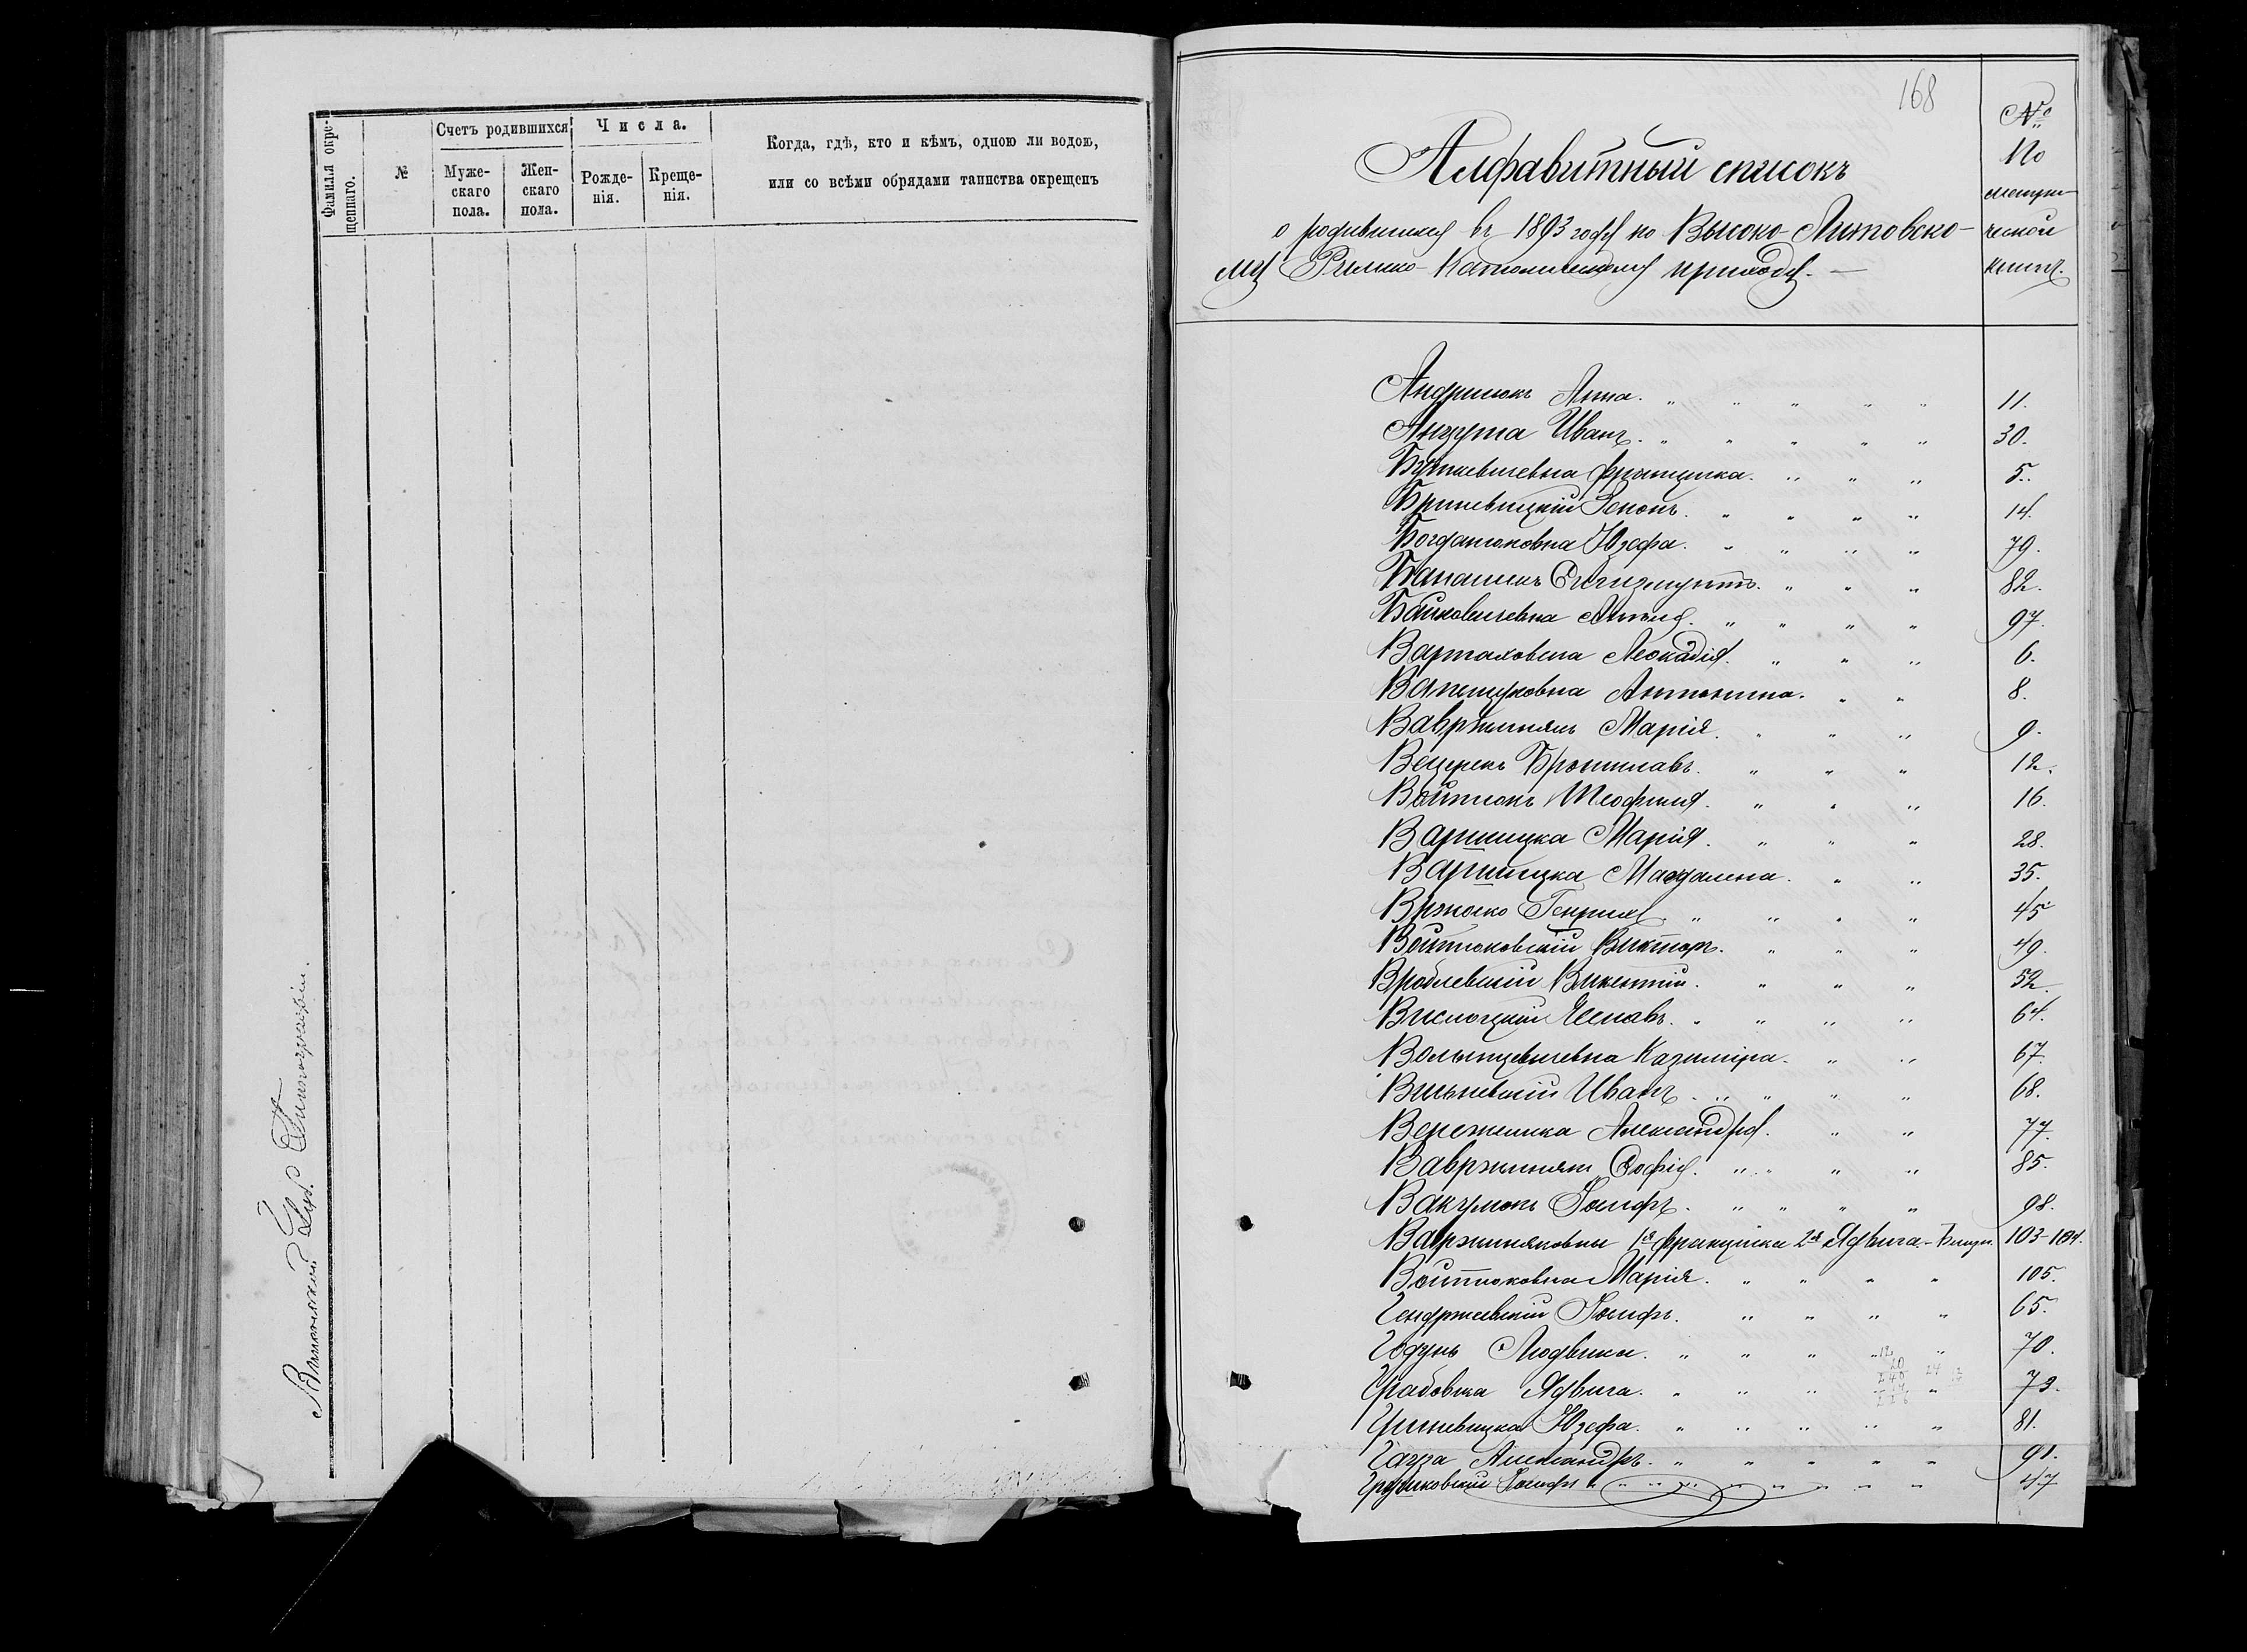 Фамилія окре-
щеннаго.
№
Счетъ родившихся
Муже-
скаго
пола.
Жен-
скаго
пола.
Числа.
Рожде-
нія.
Креще-
нія.
Когда, гдѣ, кто и кѣмъ, одною ли водою,
или со всѣми обрядами таинства окрещенъ
Виленской Губ. Типографіи.
168
№
По
метри-
ческой
книгѣ.
Алфавитный списокъ
о родившихся въ 1893 году по Высоко-Литовско-
му Римско-Католическому приходу. —
Андриюкъ Анна. 11.
Анзута Иванъ. 30.
Буткевичевна Францишка. 5.
Бриневицкій Зенонъ. 14.
Богданюковна Юзефа. 79.
Банасикъ Сигизмунтъ. 82.
Байковичевна 97.
Вартаховна Леокадія. 6.
Антонина. 8.
Вавржинякъ Марія. 9.
Вецерекъ Брониславъ. 12.
Войтюкъ Теофилія. 16.
Варпицка Марія. 28.
Варпицка Магдалена. 35.
Вржоско Генрихъ. 45
Войтюковскій Викторъ. 49.
Вроблевскій Викентій. 52.
Вислоцкій Чеславъ. 64.
Волынцевичевна Казиміра. 67.
Вильчевскій Иванъ. 68.
Вережинка Александра. 77.
Вавржинякъ Софія. 85.
Вакулюкъ Іосифъ. 98.
Вавржиняковны 1я Францишка 2я Ядвига - Близн. 103-104.
Войтюковна Марія. 105.
Гендржевскій Іосифъ. 65.
Годунь Людвика. 70.
Грабовска Ядвига. 73.
Гриневицка Юзефа. 81.
Гагза Александръ. 91.
Іосифъ 47